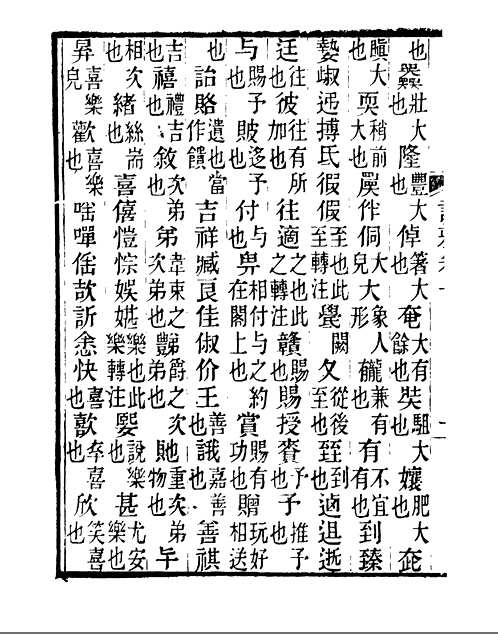 也奰壯大也隆豐大也倬箸大也奄大有餘也奘駔大也孃肥大也奃
大也耎稍前大也作侗大皃大象人形兼有也有不宜有也到臻
摶氐徦假至也此至轉注夂從後至也臸到也逝
迋往也彼往有所加也往適之也此之轉注贛賜也賜授賚予也予推予也
与賜予也貱迻予也付与也畀相付与之約在閣上也賞賜有功也贈玩好相送
也詒賂遺也當作饋吉祥臧良佳俶价王善也誐嘉善也善祺
吉也禧禮吉也敘次弟也弟韋束之次弟也豑爵之次弟也貤重次弟物也
相次也緒絲耑也喜僖愷悰娛媅樂也此樂轉注說樂也甚尤安樂也
喜樂皃歡喜樂也嘽欯訢悆快喜也歖卒喜也欣笑喜也